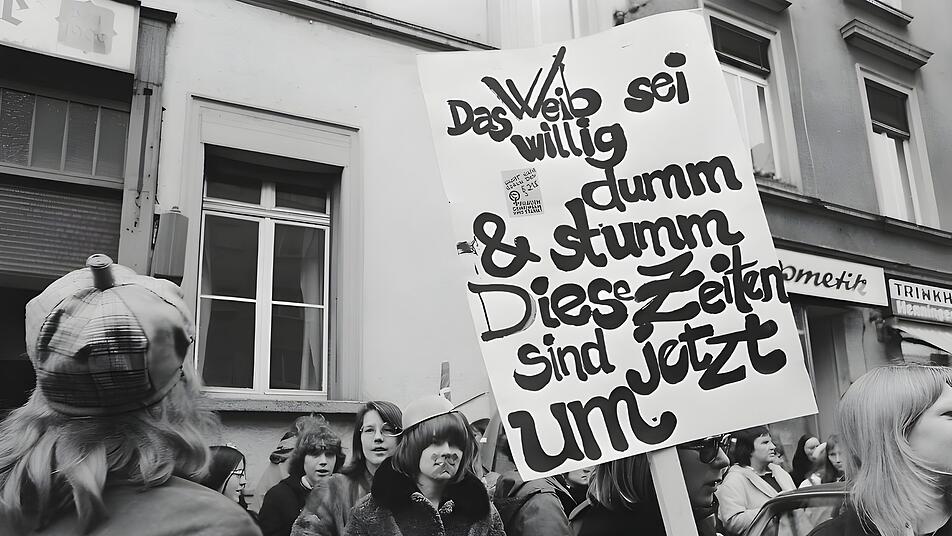 Das Weib sei
willig
dumm
& stumm
Diese Zeiten
sind jetzt
um.
§ 218
FRAUEN
osmetik
TRINKH
Henninge